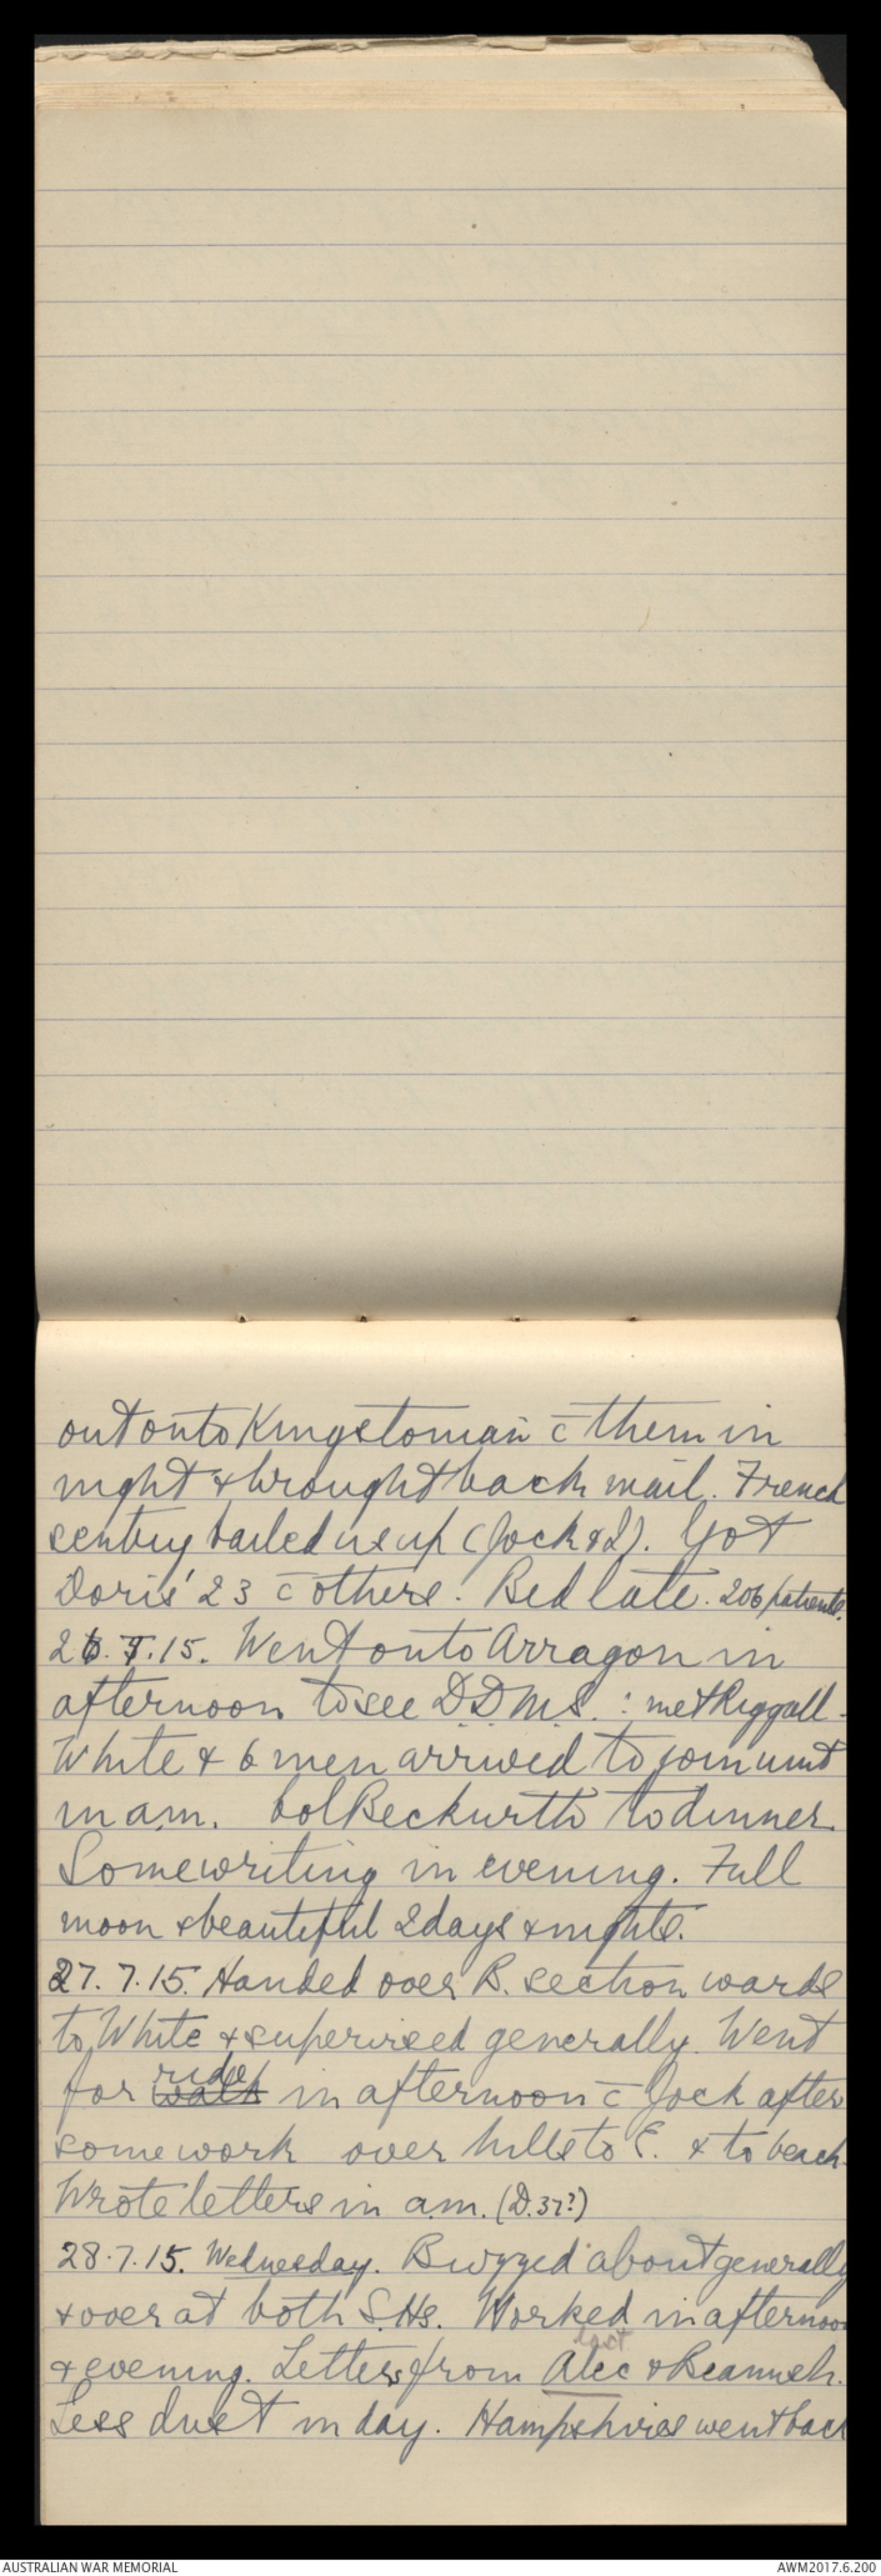 out onto Kingstonian c̄ them in
night & brought back mail. French
sentry bailed us up (Jock & I). Got
Doris' 23 c̄ others. Bed late. 206 patients.
26.7.15. Went onto Arragon in
afternoon to see D.D.M.S. : met Riggall -
White & 6 men arrived to join unit
in am. Col Beckwith to dinner.
Some writing in evening. Full
moon & beautiful 2 days & nights.
27.7.15. Handed over B. section wards
to White & supervised generally. Went
for walk ride in afternoon c̄ Jock after
some work over hills to E. & to beach.
Wrote letters in a.m. (D.37?)
28.7.15. Wednesday. Buzzed about generally
& over at both S.Hs. Worked in afternoon
last
& evening. Letters from Alec &
Less dust in day. Hampshires went back
AUSTRALIAN WAR MEMORIAL
AWM2017.6.200